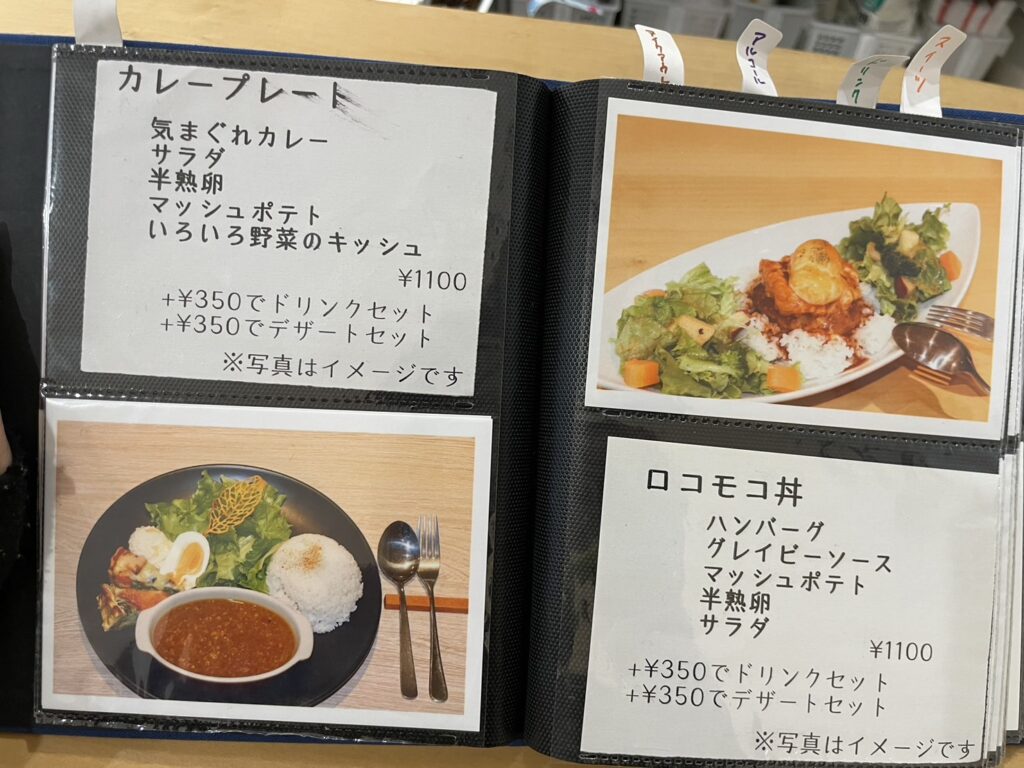 カレープレート
気まぐれカレー
サラダ
半熟卵
マッシュポテト
いろいろ野菜のキッシュ
¥1100
+¥350でドリンクセット
+¥350でデザートセット
※写真はイメージです
アルコール
ドリンク
スイーツ
ロコモコ丼
ハンバーグ
グレイビーソース
マッシュポテト
半熟卵
サラダ
¥1100
+¥350でドリンクセット
+¥350でデザートセット
※写真はイメージです